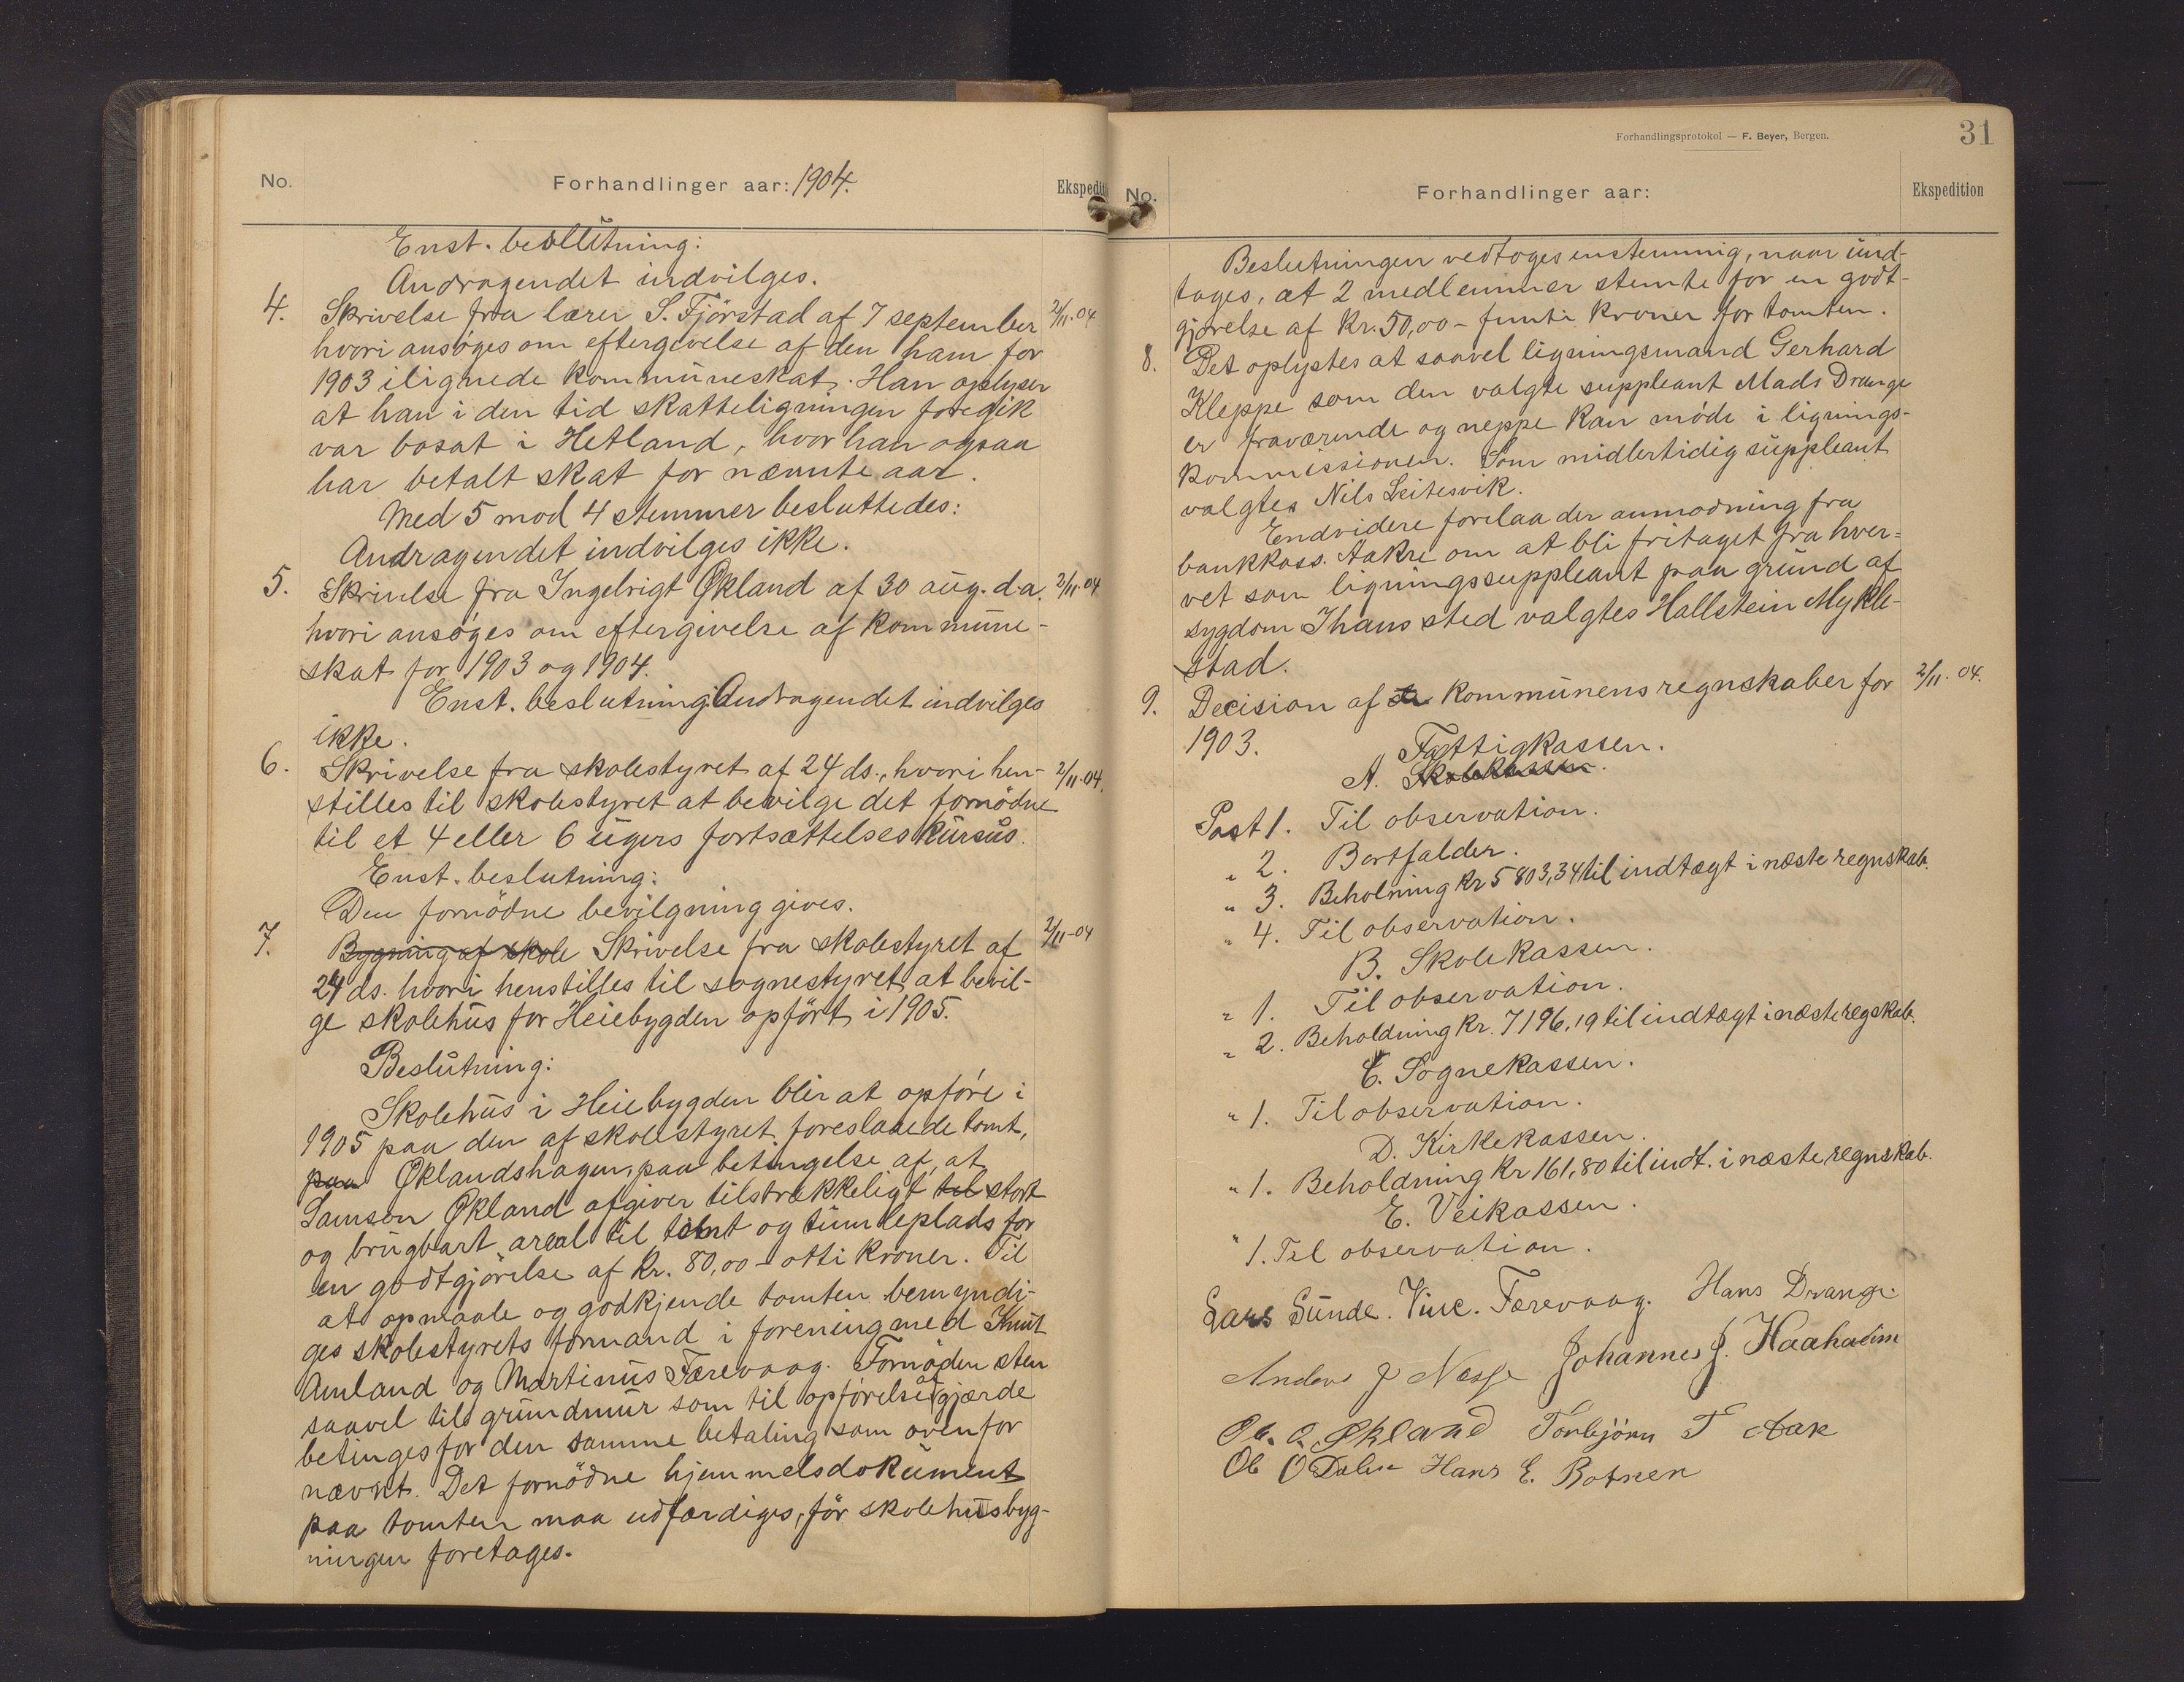 No.
Forhandlinger aar: 1904.
Ekspedit
Enst. beslutning:
Andragendet indvilges.
4. Skrivelse fra lærer S. Fjörstad af 7 september 2/11.04
hvori ansøges om eftergivelse af den ham for
1903 ilignede kommuneskat. Han oplyser
at han i den tid skatteligningen foregik
var bosat i Hetland, hvor han ogsaa
har betalt skat for nævnte aar.
Med 5 mod 4 stemmer besluttedes:
Andragendet indvilges ikke.
5. Skrivelse fra Ingebrigt Økland af 30 aug. d.a. 2/11.04
hvori ansøges om eftergivelse af kommune-
skat for 1903 og 1904.
Enst. beslutning: Andragendet indvilges
ikke.
6. Skrivelse fra skolestyret af 24 ds., hvori hen- 2/11.04.
stilles til skolestyret at bevilge det fornödne
til et 4 eller 6 ugers fortsættelseskursus.
Enst. beslutning:
Den fornödne bevilgning gives.
7. Bygning af skole Skrivelse fra skolestyret af 2/11-04
24 ds. hvori henstilles til sognestyret at bevil-
ge skolehus for Heiebygden opfört i 1905.
Beslutning:
Skolehus i Heiebygden blir at opföre i
1905 paa den af skolestyret foreslaaede tomt,
paa Øklandshagen, paa betingelse af, at
Samson Økland afgiver tilstrækkeligt til stort
og brugbart areal til tomt og tumleplads for
en godtgjörelse af kr. 80,00 - otti kroner. Til
at opmaale og godkjende tomten bemyndi-
ges skolestyrets formand i forening med Knut
Amland og Martinus Færevaag. Fornöden sten
saavel til grundmur som til opförelse af gjærde
betinges for den samme betaling som ovenfor
nævnt. Det fornödne hjemmelsdokument
paa tomten maa udfærdiges, för skolehusbyg-
ningen foretages.
Forhandlingsprotokol — F. Beyer, Bergen.
31
No.
Forhandlinger aar:
Ekspedition
Beslutningen vedtoges enstemmig, naar und-
tages, at 2 medlemmer stemte for en godt-
gjörelse af kr. 50,00 - femti kroner for tomten.
8. Det oplystes at saavel ligningsmand Gerhard
Kleppe som den valgte suppleant Mads Drange
er fraværende og neppe kan möde i lignings-
kommissionen. Som midlertidig suppleant
valgtes Nils Leitesvik.
Endvidere forelaa der anmodning fra
bankkass. Aakre om at bli fritaget fra hver-
vet som ligningssuppleant paa grund af
sygdom I hans sted valgtes Hallstein Mykle-
stad.
9. Decision af kommunens regnskaber for 2/11.04.
1903.
Fattigkassen.
A. Skolekassen.
Post 1. Til observation.
" 2. Bortfalder.
" 3. Beholning kr 5803,34 til indtægt i næste regnskab.
" 4. Til observation.
B. Skolekassen.
" 1. Til observation.
" 2. Beholdning kr. 7196,19 til indtægt i næste regskab.
C. Sognekassen.
" 1. Til observation.
D. Kirkekassen.
" 1. Beholdning kr 161,80 til indt. i næste regnskab.
E. Veikassen.
" 1. Til observation.
Lars Sunde. Vinc. Færevaag. Hans Drange.
Anders J Nesse Johannes J. Haaheim
Ol. O. Økland Torbjörn T Aak
Ole O Dalen Hans E. Botnen